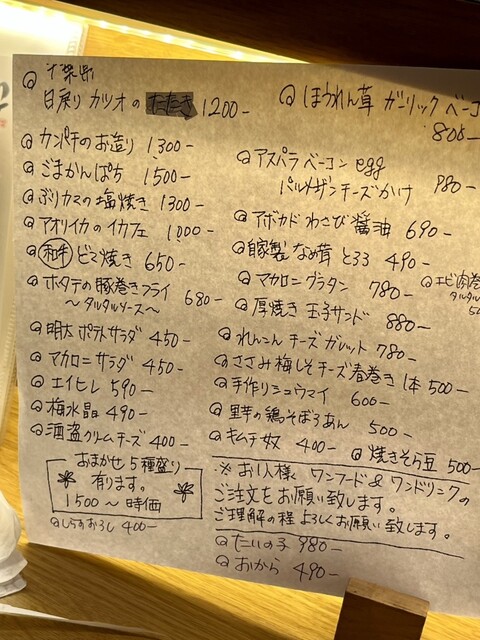 千葉県
日戻り カツオの たたき 1200-
カンパチのお造り 1300-
ごまかんぱち 1500-
ぶりカマの塩焼き 1300-
アオリイカのイカフェ 1000-
和牛 ピマ焼き 650-
ホタテの豚巻きフライ
～タルタルソース～ 680-
明太ポテトサラダ 450-
マカロニサラダ 450-
エイヒレ 590-
梅水晶 490-
酒盗クリームチーズ 400-
おまかせ5種盛り
有ります。
1500～時価
しらすおろし 400-
ほうれん草 ガーリック ベーコ
800-
アスパラ ベーコン egg
パルメザンチーズかけ 980-
アボカド わさび 醤油 690-
自家製 なめ茸 とろろ 490-
マカロニグラタン 780-
エビ肉巻
タルタル
厚焼き 玉子サンド 880-
れんこん チーズ ガレット 780-
ささみ梅しそチーズ春巻き 1本 500-
手作りシュウマイ 600-
里芋の鶏そぼろあん 500-
キムチ奴 400-
焼きそら豆 500-
※お1人様 ワンフード&ワンドリンクの
ご注文をお願い致します。
ご理解の程 よろしくお願い致します。
たいの子 980-
おから 490-